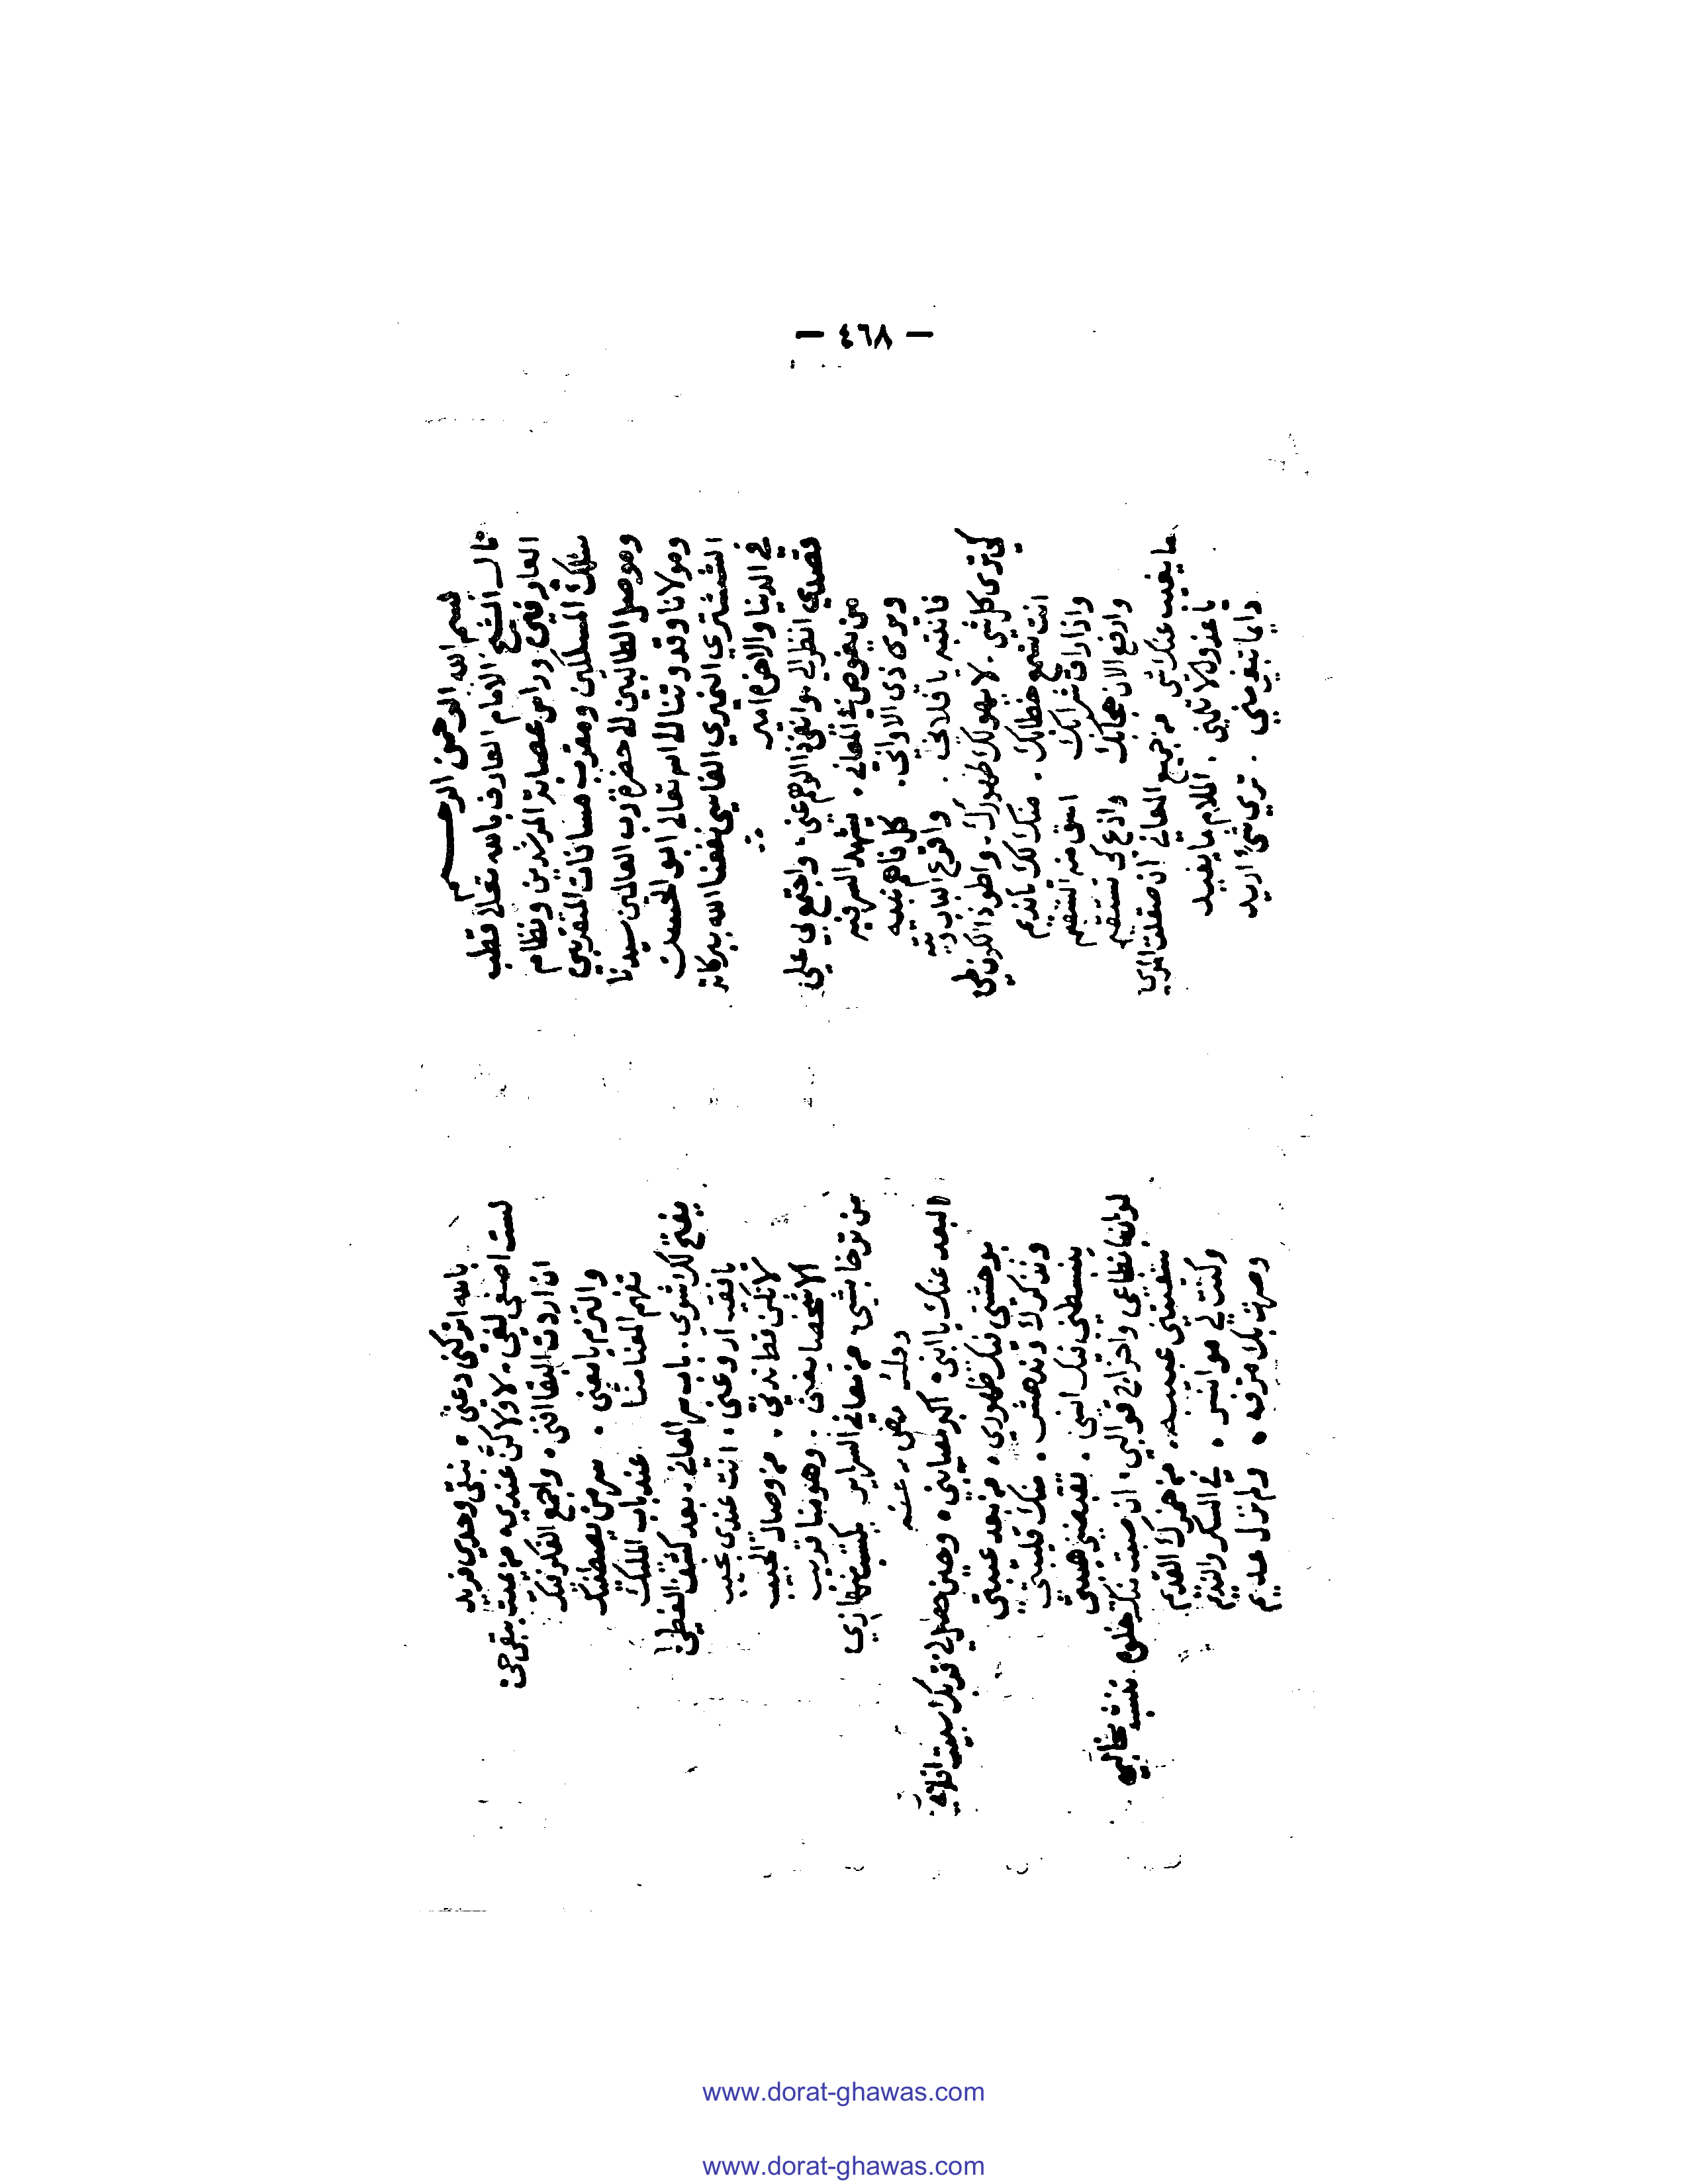 — ٤٦٨ —
بسم الله الرحمن الرحيم
قال الشيخ الامام العارف بالله تعالى قطب
العارفين وراس عصابة المرشدين ونظام
سلك المسلكين ومقرب مسافات المتقربين
وموصل الطالبين الى حضرة رب العالمين سيدنا
ومولانا وقدوتنا الى الله تعالى ابو الحسن
الششتري النميري الفاسي نفعنا الله ببركاته
في الدنيا والاخرة امين
قصدي انظر لي بوانفي ذا الوهم عني واجتمع لي علي
من يغوص في المعاني . يشهد السر فيه
ويرى ذي الاواني . كل فاهم نبيه
فانتبه يا فلاني . واقرع الباب
كي ترى كل شي . لا يهولك ظهورك . واطو ذا الكون طي
انت تسمع خطابك . منك لك يا نديم
واذا راق شرابك اسق منه السقيم
وارفع الان حجابك واذع كي تستقيم
ما يغيب عنك شي من جميع المعاني ان صقلت المري
يا عذولي لا تلمني . الملام ما يفيد
دايما تبغو مني . تري شي اريد
بالله اتركني دعني . نبقى وحدي فريد
لست اصغي لغي . لا ولا كن عندي من يمت يبقى حي
ان اردت البقا افنى . واجمع الفكر فيك
والتزم يا معنى . سر من يصطفيك
تفهم المعنا منا عند باب المليك
يفتح لك اشوي . باب سر المعاني . بعد كشف الغطي
يا فقيه اروعني . انت عندي عجيب
لا تكن قط ندني . من وصال الحبيب
الا شخصا يغني . وهو منا قريب
من توخا بشي من معاني السراير يكتسبها زي
وله رضي عنه
البعد عنك يا ابني . اكبر مصايبي . وحين حصل لي قربك سيبت اقلابي
بوحشتي فيك ظهوري . من بعد غيبتي
ونذكرك وندهش . منك قلبتي
يبسطني فيك انسي . تقبضني هيبتي
لولا انقطاعي واختراع قوالبي . ان صفت نيك خلوه نشبت مخالبي
سقيتني غيبه . من خمرك القديم
وكنت لي موانس . في السكر والنديم
وصرت بك مرفه . ولم نزل عديم
www.dorat-ghawas.com
www.dorat-ghawas.com